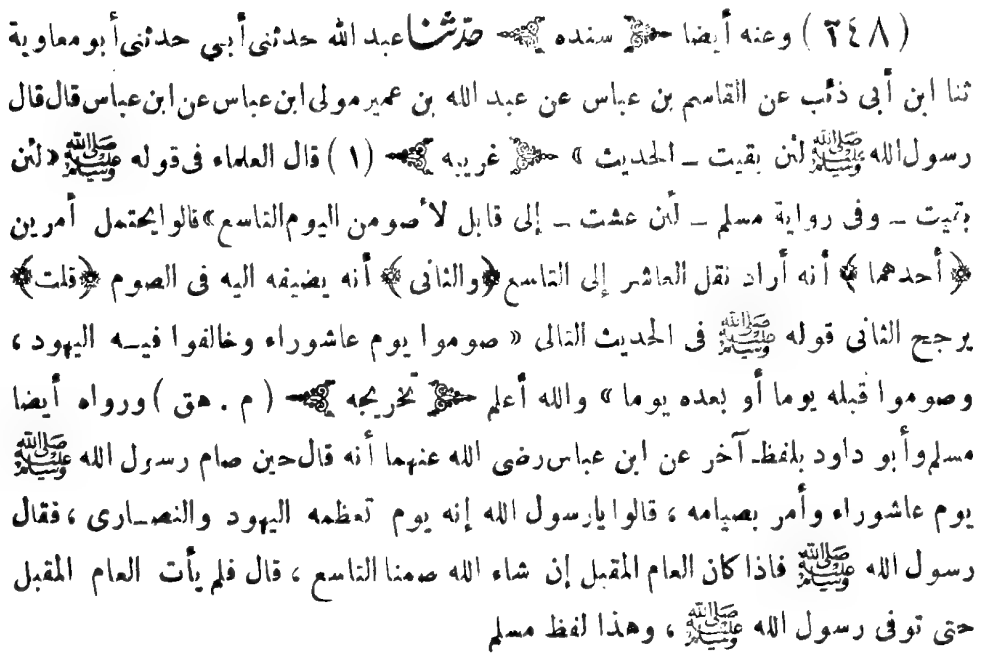 (٢٤٨) وعنه أيضا ﴿ سنده ﴾ حدثنا عبد الله حدثنى أبي حدثنى أبو معاوية
ثنا ابن أبى ذئب عن القاسم بن عباس عن عبد الله بن عمير مولى ابن عباس عن ابن عباس قال قال
رسول الله ﷺ لئن بقيت ــ الحديث » ﴿ غريبه ﴾ (١) قال العلماء فى قوله ﷺ «لئن
بقيت ــ وفى رواية مسلم ــ لئن عشت ــ إلى قابل لأصومن اليوم التاسع» قالوا يحتمل أمرين
﴿ أحدهما ﴾ أنه أراد نقل العاشر إلى التاسع ﴿ والثانى ﴾ أنه يضيفه اليه فى الصوم ﴿ قلت ﴾
يرجح الثانى قوله ﷺ فى الحديث التالى « صوموا يوم عاشوراء وخالفوا فيه اليهود ،
وصوموا قبله يوما أو بعده يوما » والله أعلم ﴿ تخريجه ﴾ ( م . هق ) ورواه أيضا
مسلم وأبو داود بلفظ آخر عن ابن عباس رضى الله عنهما أنه قال حين صام رسول الله ﷺ
يوم عاشوراء وأمر بصيامه ، قالوا يارسول الله إنه يوم تعظمه اليهود والنصارى ، فقال
رسول الله ﷺ فاذا كان العام المقبل إن شاء الله صمنا التاسع ، قال فلم يأت العام المقبل
حتى توفى رسول الله ﷺ ، وهذا لفظ مسلم